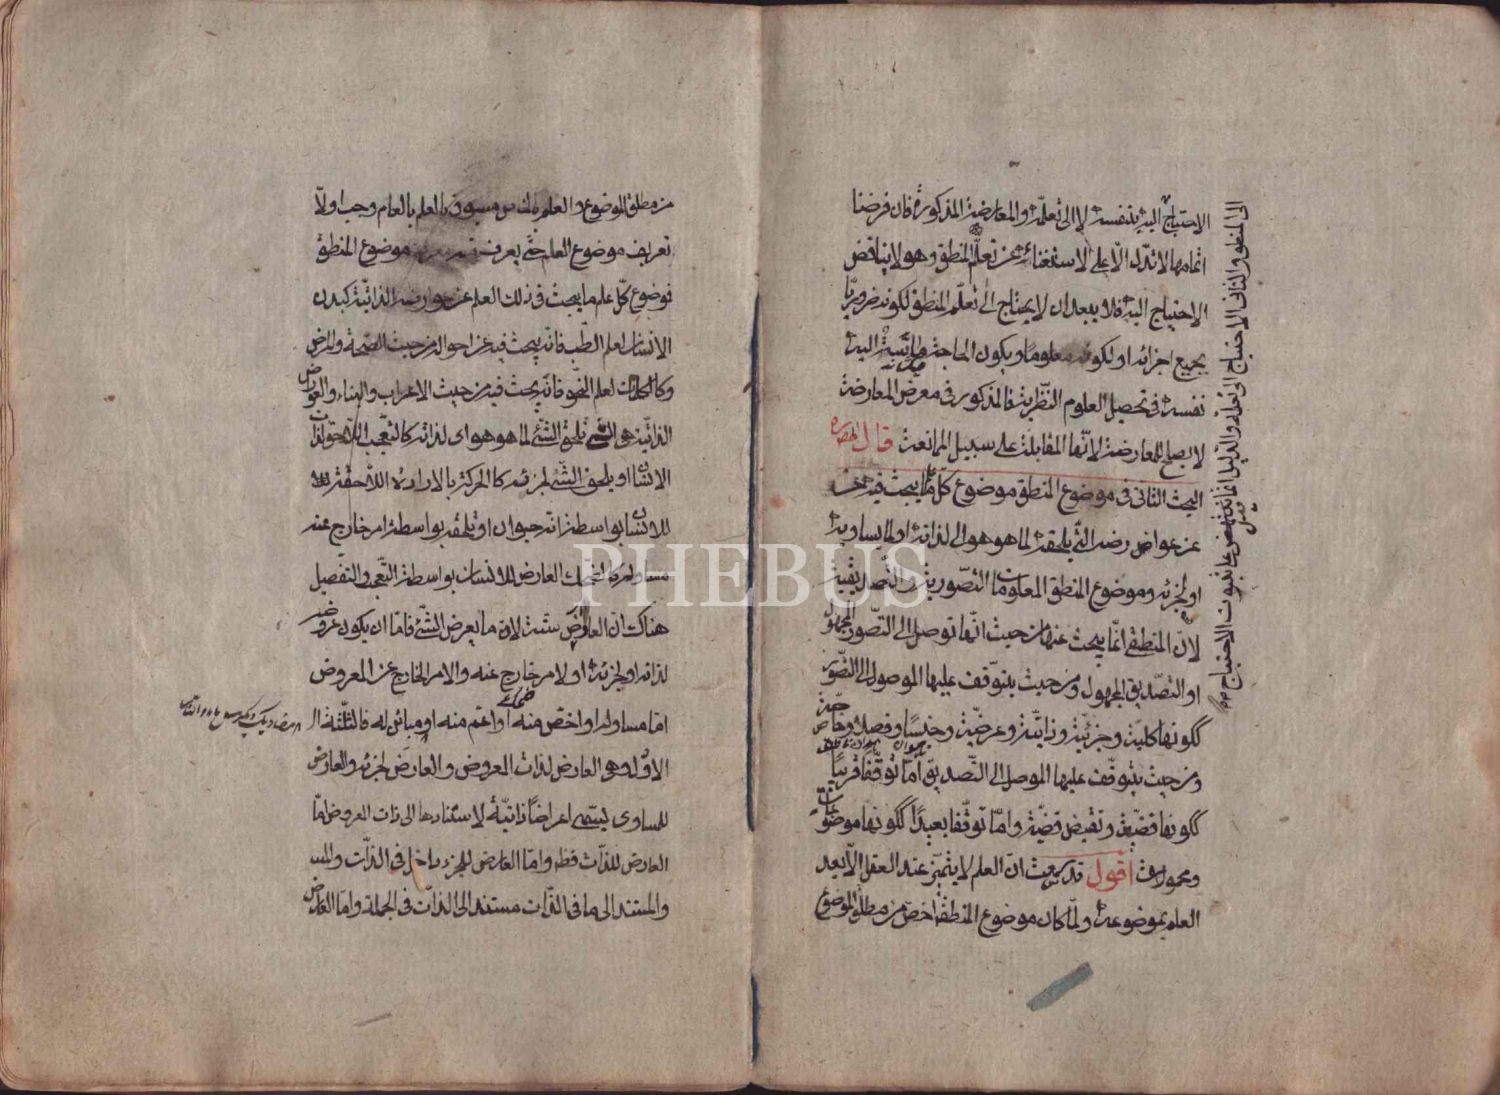 الاحتياج اليه بنفسه لا الى تعلمه والمعارضة المذكورة فان فرضنا
اتمامها لا تدل الا على الاستغناء عن تعلم المنطق وهو لا يناقض
الاحتياج اليه فلا يبعد ان لا يحتاج الى تعلم المنطق لكونه ضروريا
بجميع اجزائه او لكونه معلوما ويكون الحاجة ماسة اليه
نفسه فى تحصيل العلوم النظرية فالمذكور فى معرض المعارضة
لا يصلح للمعارضة لانها المقابلة على سبيل الممانعة قال
البحث الثانى فى موضوع المنطق موضوع كل علم ما يبحث فيه
عن عوارضه التى يلحقه لما هو هو اى لذاته او لما يساويه
او لجزئه وموضوع المنطق المعلومات التصورية والتصديقية
لان المنطقى انما يبحث عنها من حيث انها توصل الى التصور المجهول
او التصديق المجهول ومن حيث يتوقف عليها الموصل الى التصور
ككونها كلية وجزئية وذاتية وعرضية وجنسا وفصلا وخاصة
ومن حيث يتوقف عليها الموصل الى التصديق اما توقفا قريبا
ككونها قضية ونقيض قضية واما توقفا بعيدا ككونها موضوعات
ومحمولات اقول قد سمعت ان العلم لا يتميز عند العقل الا بعد
العلم بموضوعه ولما كان موضوع المنطق اخص من مطلق الموضوع
الى المنطق والثانى الاحتياج الى تعلمه والدليل انما ينتهض على ثبوت الاحتياج
من مطلق الموضوع والعلم بالخاص مسبوق بالعلم بالعام وجب اولا
تعريف موضوع العلم حتى يعرف موضوع المنطق
فموضوع كل علم ما يبحث فى ذلك العلم عن عوارضه الذاتية كبدن
الانسان لعلم الطب فانه يبحث فيه عن احواله من حيث الصحة والمرض
وكالكلمات لعلم النحو فانه يبحث فيه من حيث الاعراب والبناء والعوارض
الذاتية هى التى تلحق الشئ لما هو هو اى لذاته كالتعجب اللاحق لذات
الانسان او يلحق الشئ لجزئه كالحركة بالارادة اللاحقة
للانسان بواسطة انه حيوان او يلحقه بواسطة امر خارج عنه
مساو له كالضحك العارض للانسان بواسطة التعجب والتفصيل
هناك ان العوارض ستة لان ما يعرض الشئ فاما ان يكون عروضه
لذاته او لجزئه او لامر خارج عنه والامر الخارج عن المعروض
اما مساو له او اخص منه او اعم منه او مباين له فالثلثة ال
الاول وهو العارض لذات المعروض والعارض لجزئه والعارض
للمساوى يسمى اعراضا ذاتية لاستنادها الى ذات المعروض اما
العارض للذات فظ واما العارض للجزء داخل فى الذات
والمستند الى ما فى الذات مستند الى الذات فى الجملة واما العارض
PHEBUS